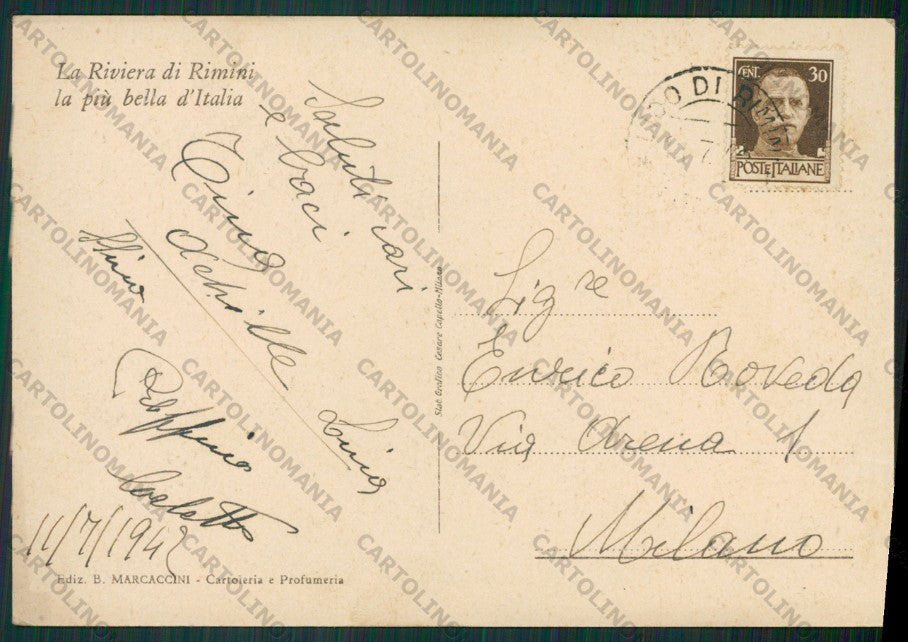 La Riviera di Rimini
la più bella d'Italia
Saluti cari
e baci
Tino
Achille
Luisa
Peppino
11/7/1942
Ediz. B. MARCACCINI - Cartoleria e Profumeria
Stab. Grafico Cesare Capello-Milano
CENT. 30
POSTE ITALIANE
DI RIMINI
Sig.re
Enrico Roveda
Via Arena 1
Milano
CARTOLINOMANIA